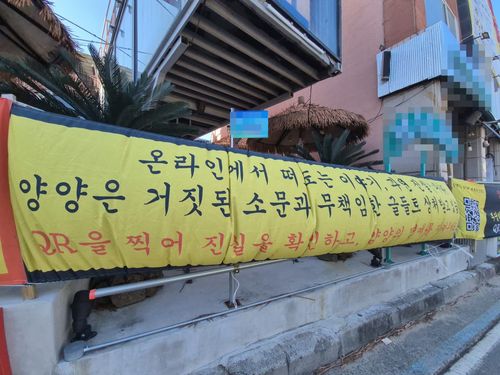 온라인에서 떠도는 이야기,
양양은 거짓된 소문과 무책임한 글들로 상처
QR을 찍어 진실을 확인하고, 양양의